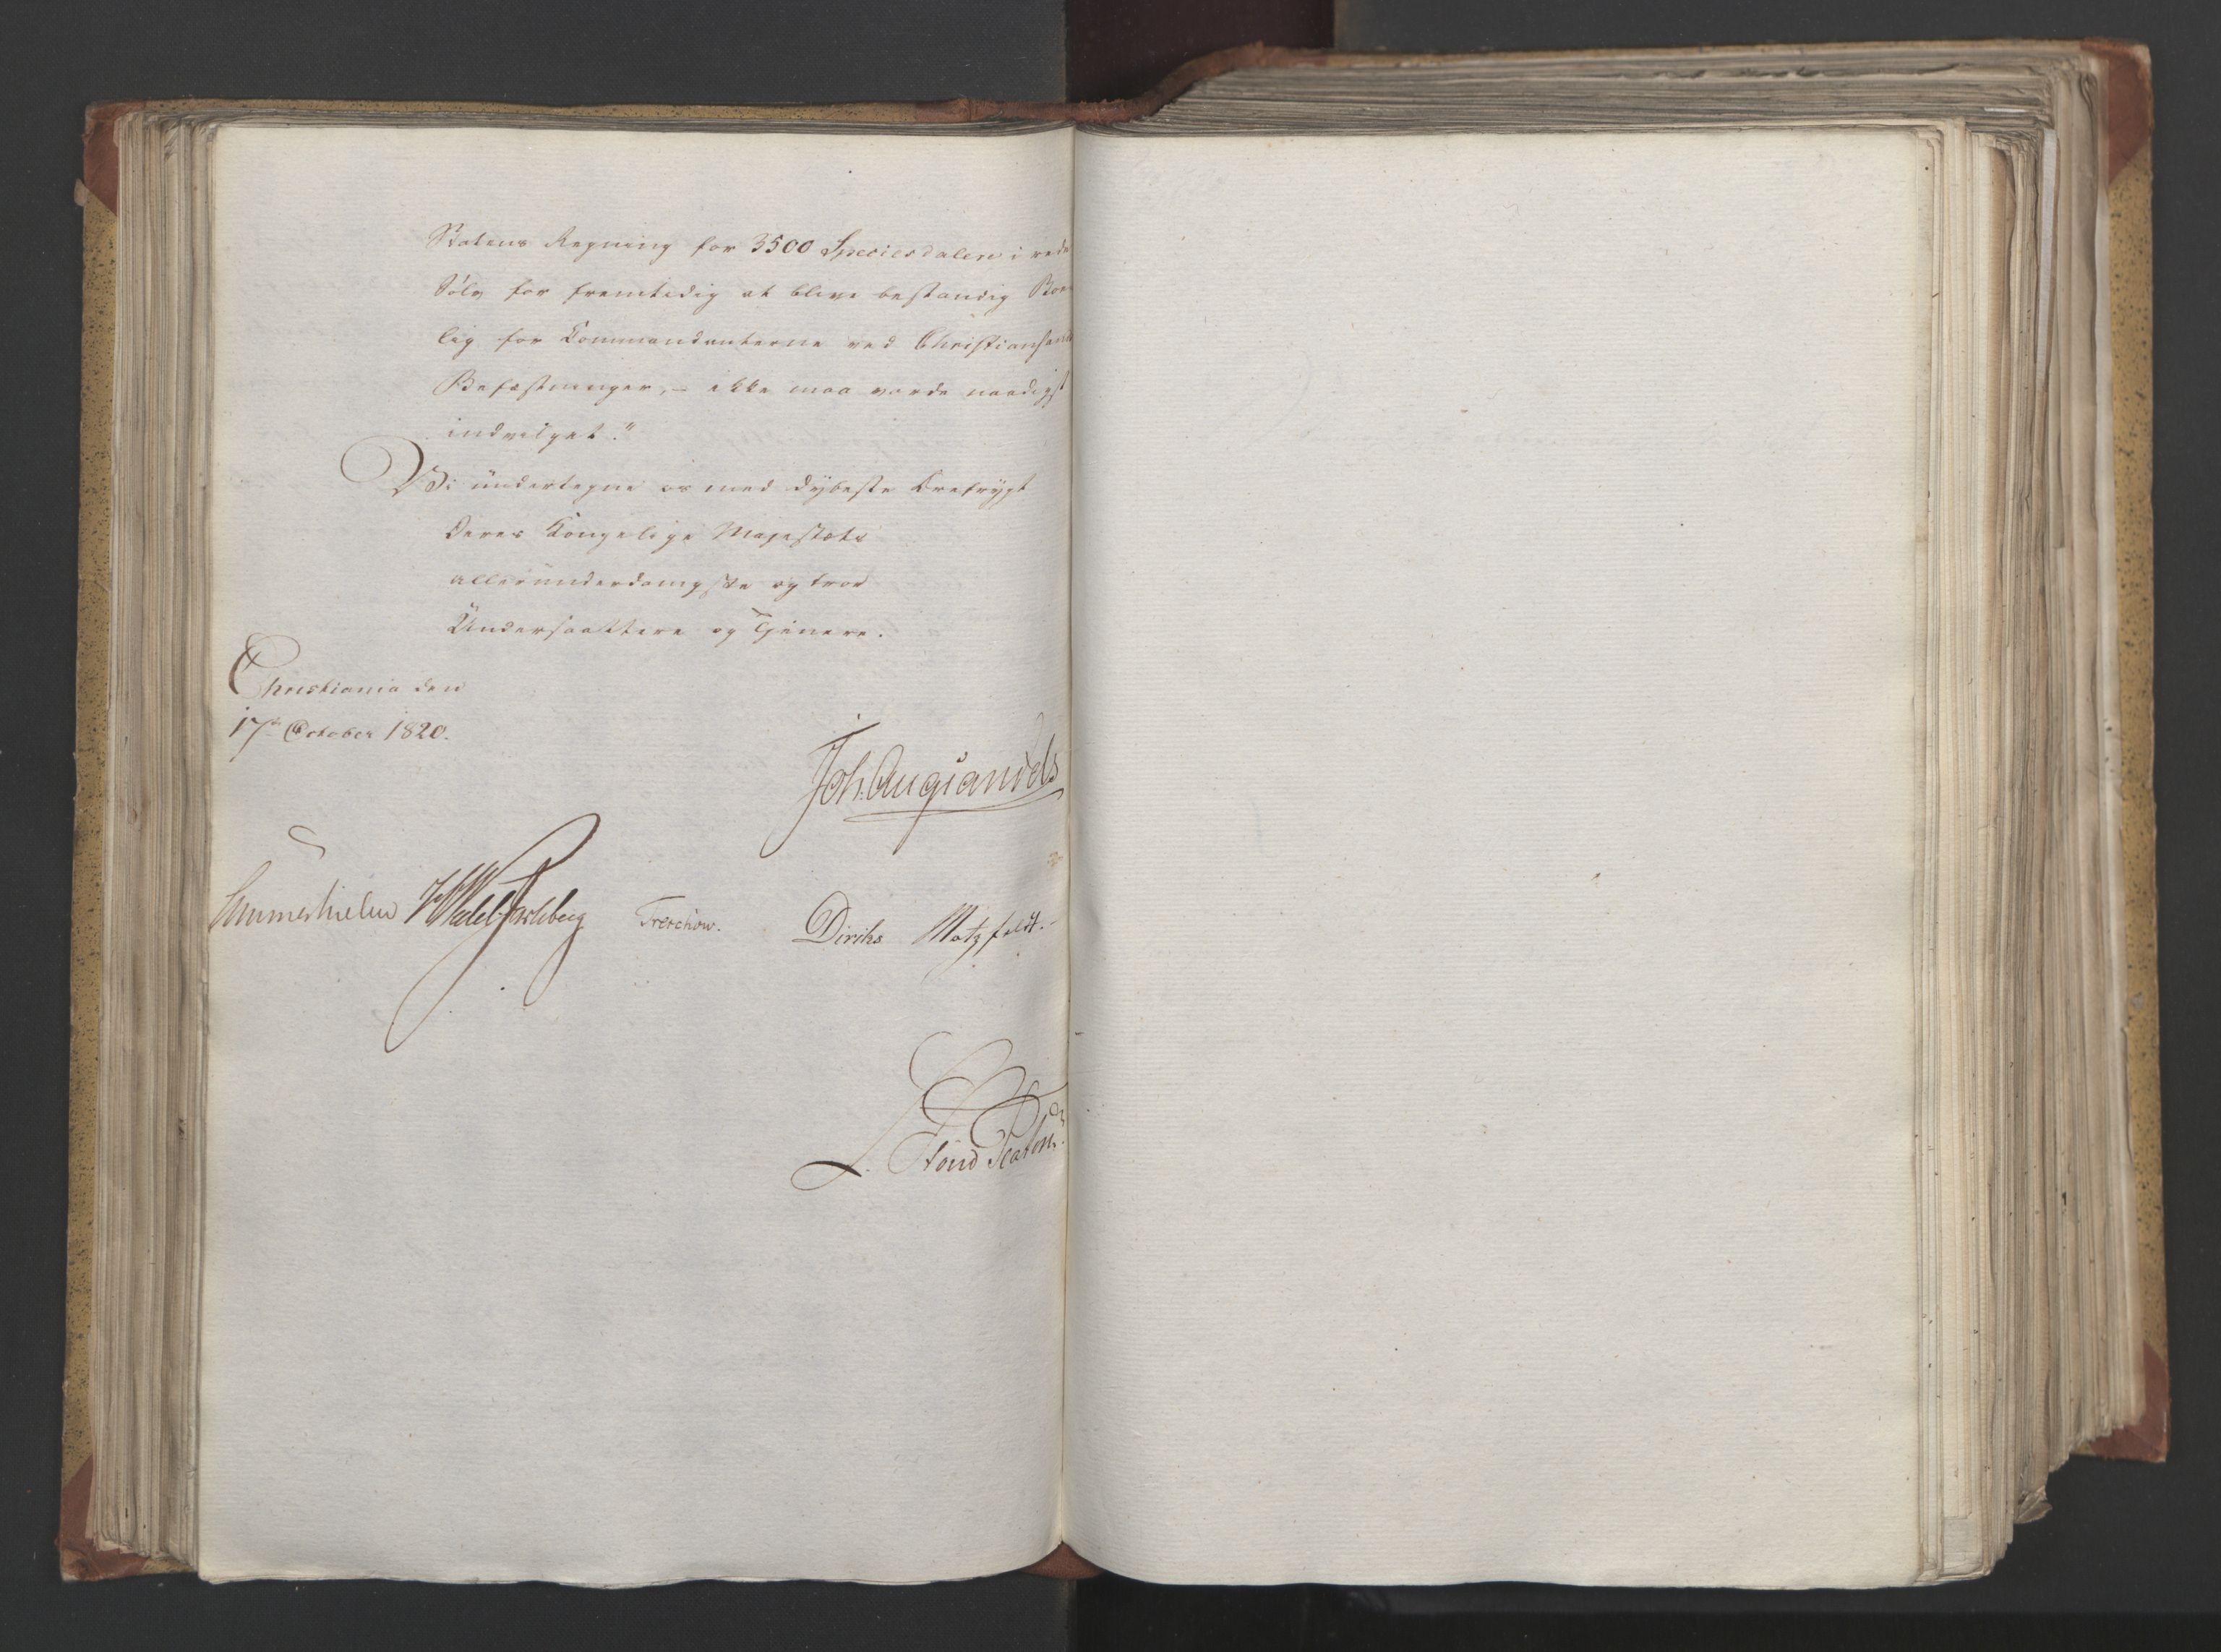 Statens Regning for 3500 Speciesdaler i rede
Sölv for fremtidig at blive bestandig Boe-
lig for Commandanterne ved Christiansands
Befæstninger, – ikke maa vorde naadigst
indvilget."
Vi undertegne os med dybeste Ærefrygt
Deres Kongelige Majestæts
allerunderdanigste og troe
Undersaattere og Tjenere.
Christiania den
17de October 1820.
Joh: Aug: Sandels
Sommerhielm HWedel Jarlsberg Treschow. Diriks Motzfeldt.